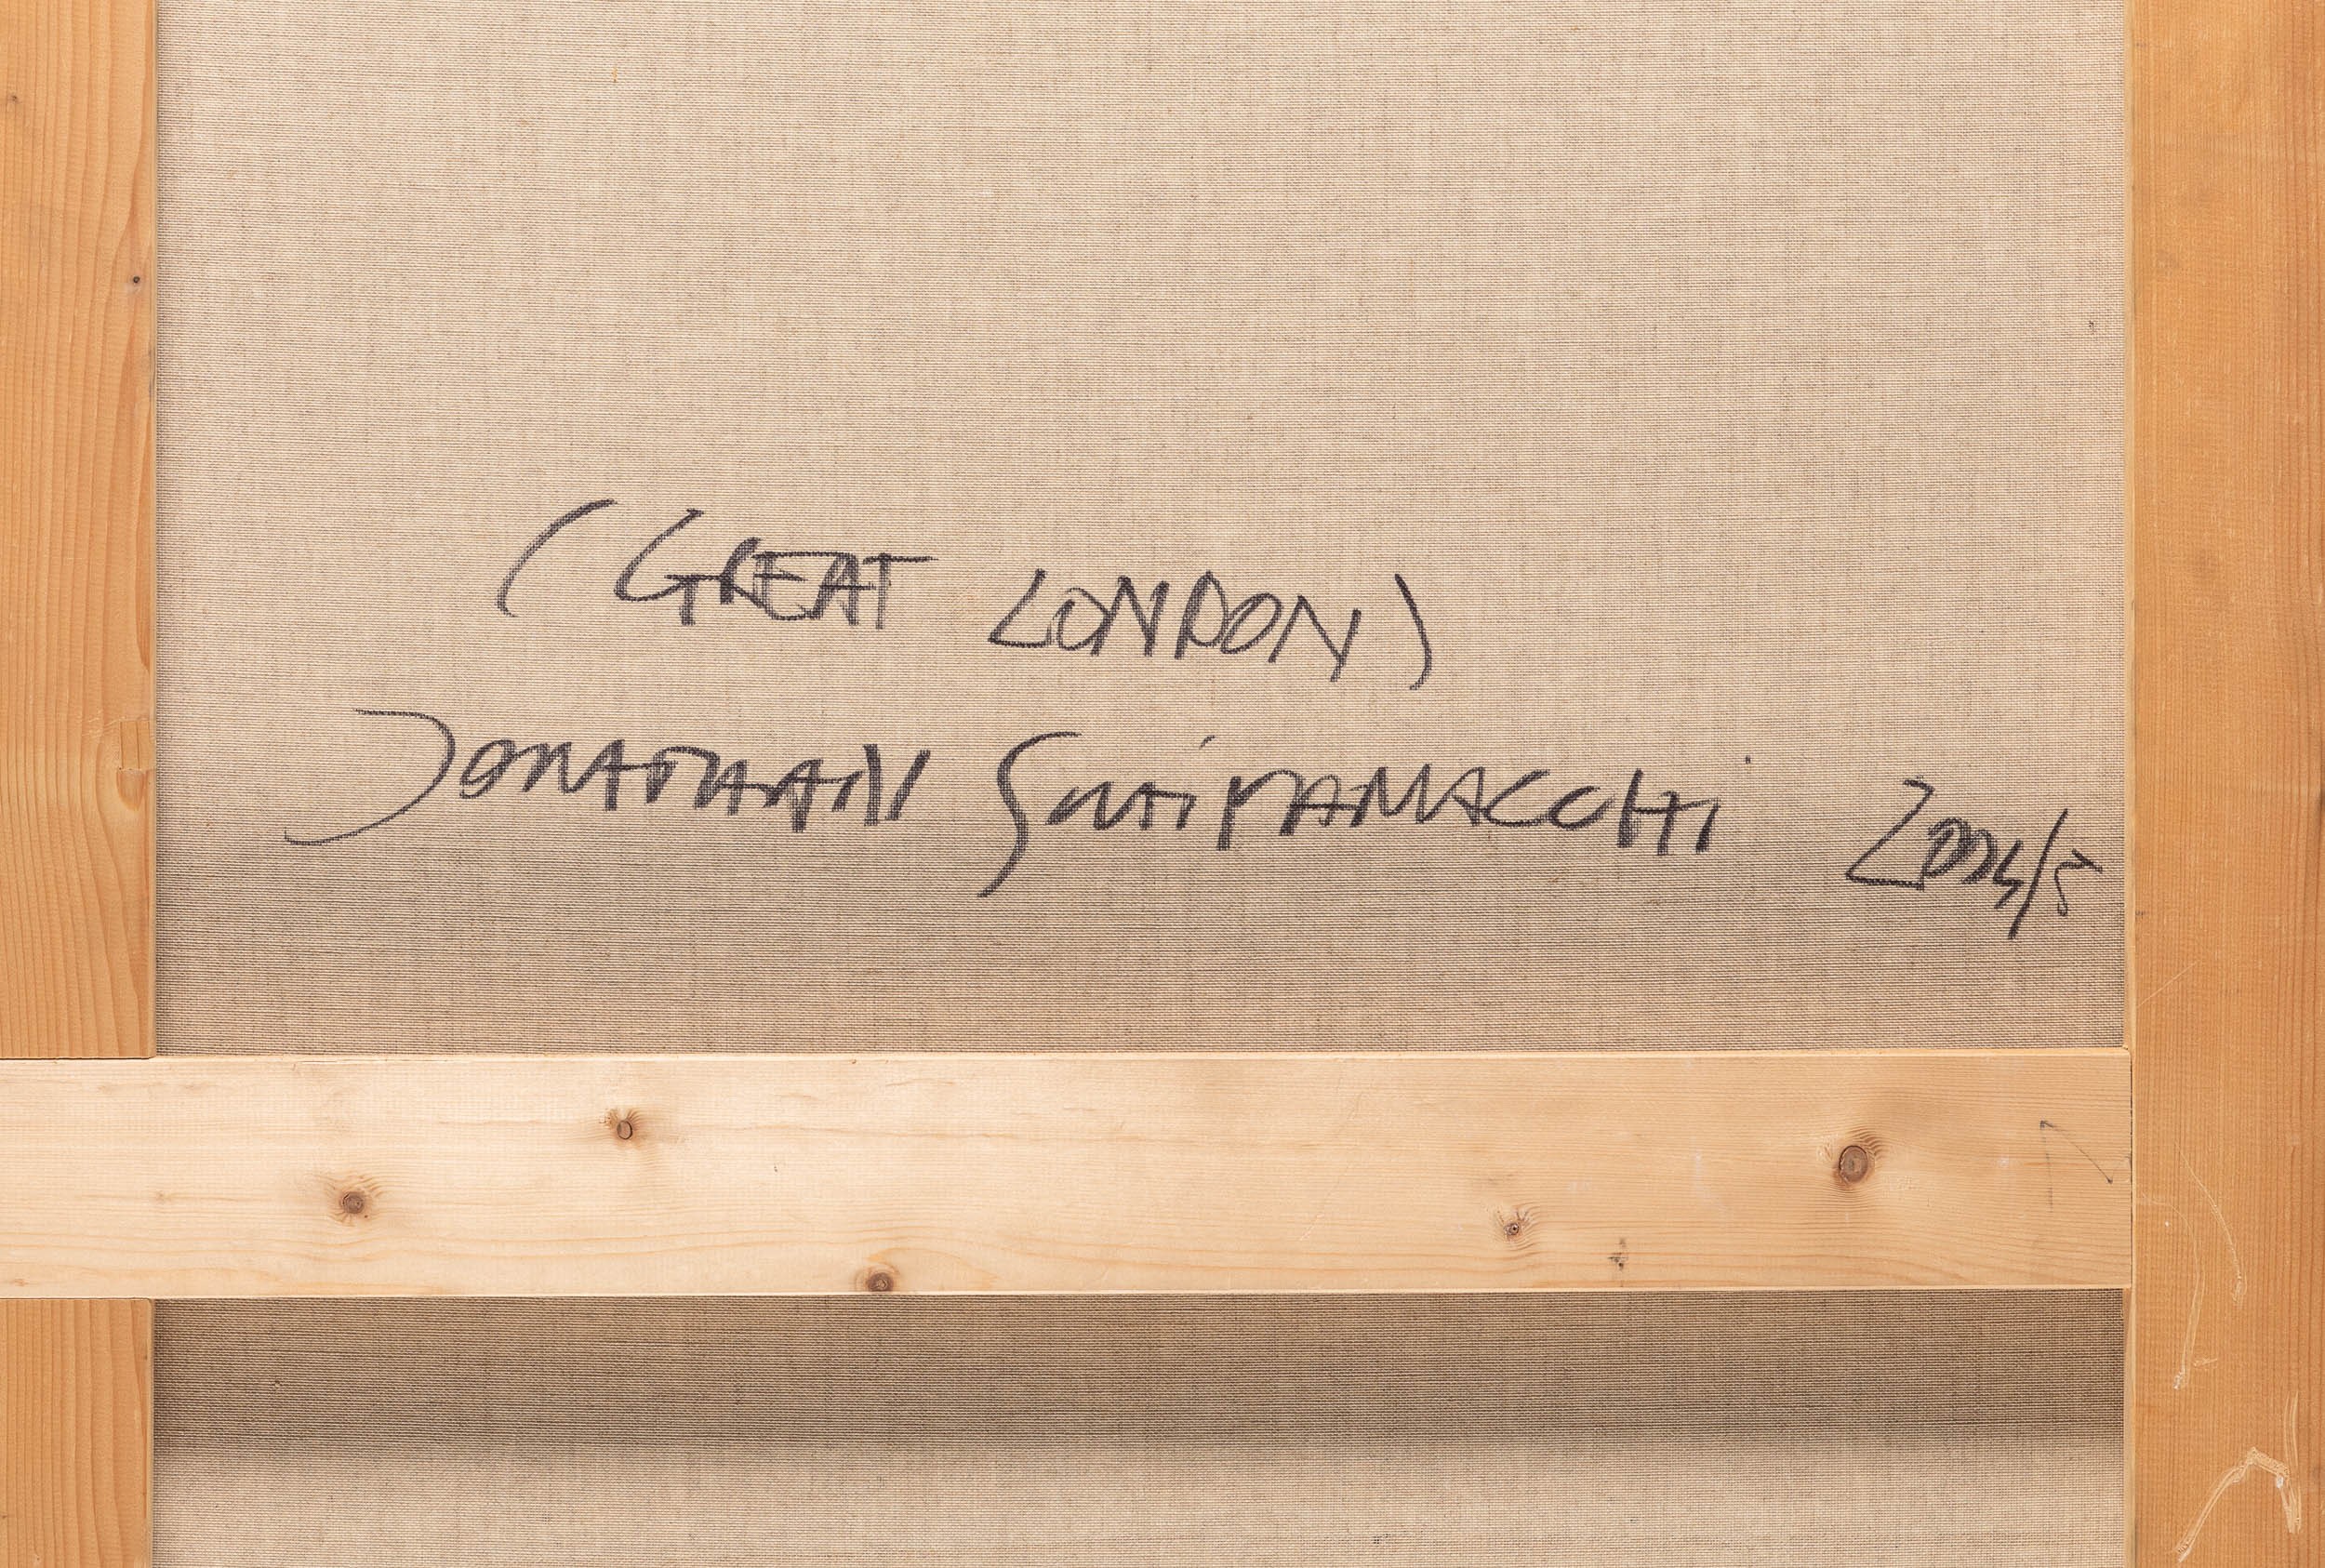 (GREAT LONDON)
JONATHAN GUAiTAMACCHi 2004/5